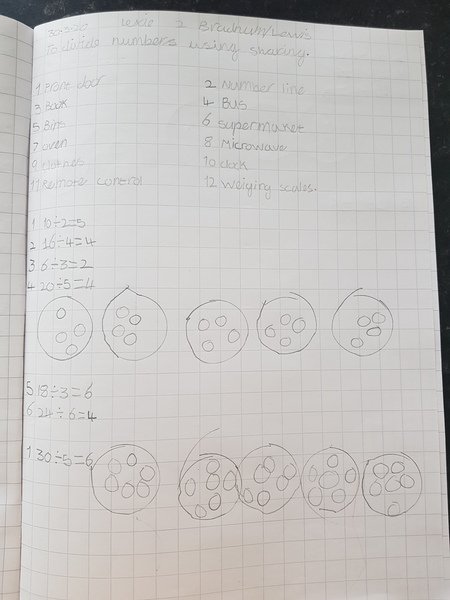 30.3.20 Lexie 2 Bradnum/Lewis
To divide numbers using sharing.
1 Front door 2 Number line
3 Book 4 Bus
5 Bins 6 supermarket
7 oven 8 Microwave
9 clothes 10 clock
11 Remote control 12 Weighing scales.
1 10÷2=5
2 16÷4=4
3. 6÷3=2
4 20÷5=4
5 18÷3=6
6 24÷6=4
1 30÷5=6